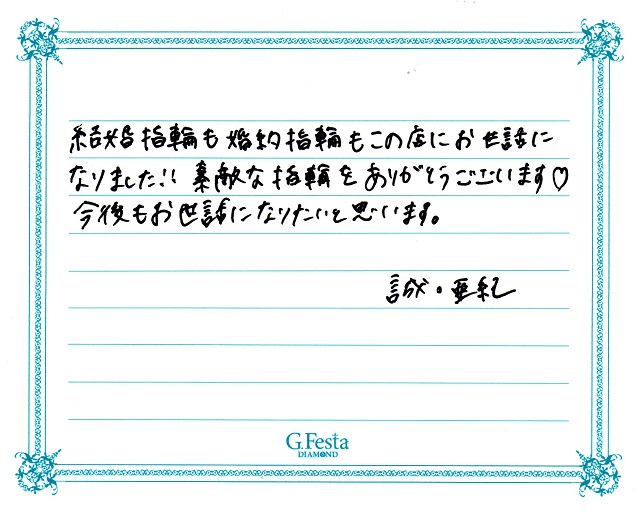 結婚指輪も婚約指輪もこの店にお世話に
なりました!! 素敵な指輪をありがとうございます♡
今後もお世話になりたいと思います。
誠・亜紀
G.Festa
DIAMOND